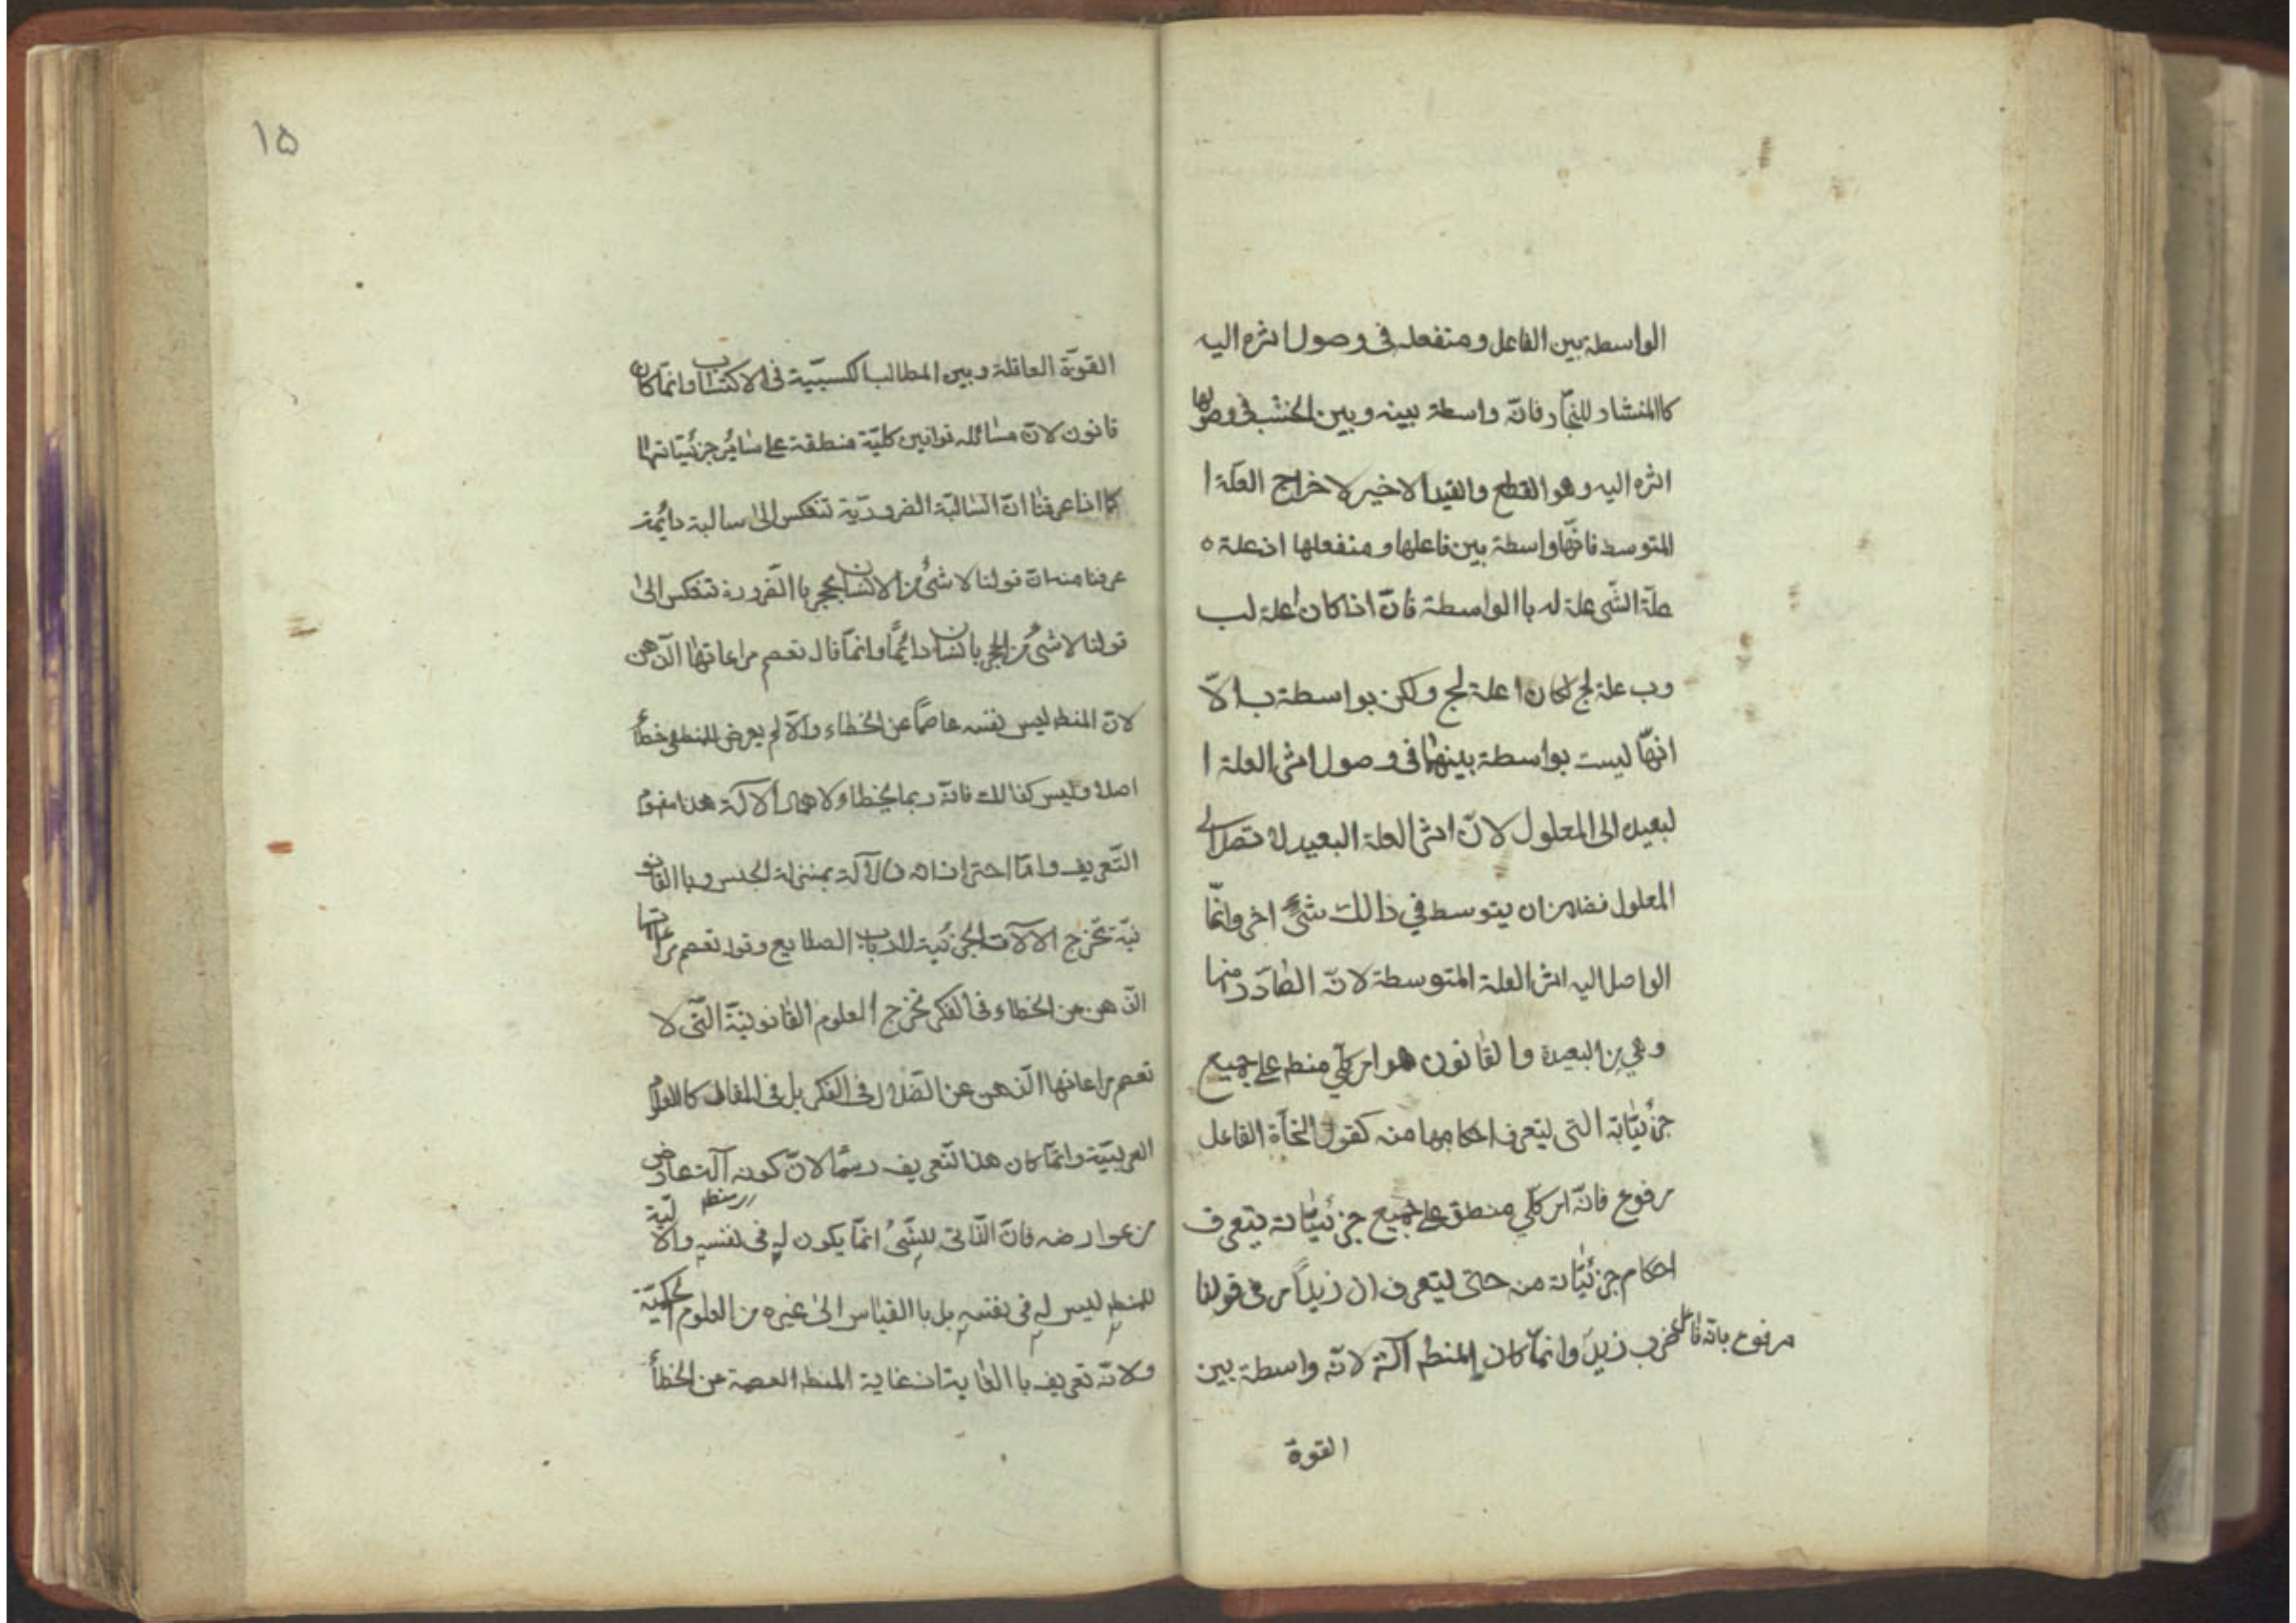 الواسطة بين الفاعل ومنفعله فی وصول اثره الیه
کاالمنشار للنجّار فانّه واسطة بینه وبین الخشب فی وصولها
اثره الیه وهو القطع والقید الاخیر لاخراج العلّة ا
المتوسط فانّها واسطة بین فاعلها ومنفعلها اذ علة ه
علّة الشّی علة له باالواسطة فانّ اذا کان ا علة لب
وب علة لج لکان ا علة لج ولکن بواسطة ب الاّ
انهّا لیست بواسطة بینهما فی وصول اثر العلة ا
لبعیده الی المعلول لانّ اثر العلة البعیده لا تصل الی
المعلول فضلا من ان یتوسط في ذالك شیء اخر وانّما
الواصل الیه اثر العلة المتوسطة لانّه الصّادر منها
وهی من البعیدة والقانون هو امر کلّي منط علی جمیع
جزئیّاته التی لیتعرف احکامها منه کقول النحّاة الفاعل
مرفوع فانّه امر کلّي منطق علی جمیع جزئیّاته یتعرف
احکام جزئیّاته منه حتی لیتعرف ان زیداً مر فی قولنا
ضرب زید مرفوع بانّه فاعل وانمّا کان المنط آلة لانّه واسطة بین
القوة
۱۵
القوّة العاقلة وبین المطالب الکسبیّة فی الاکتساب وانمّا کان
قانون لانّ مسائله قوانین کلیّة منطقة علی سایر جزئیّاتها
کما اذا عرفنا انّ السّالبة الضروریّة تنعکس الیٰ سالبة دائمة
عرفنا منه انّ قولنا لا شئ من الانسان بحجر باالضّرورة تنعکس الیٰ
قولنا لا شئ من الحجر بانسان دائمًا وانمّا قال تعصم مراعاتها الذّهن
لانّ المنط لیس نفسه عاصمًا عن الخطاء والاّ لم یعرض للمنطقی خطأ
اصلا ولیس کذالك فانّه ربما یخطا ولاهمال الالة هذا مفهوم
التّعریف وامّا احترازاته فالآلة بمنزلة الجنس وباالقانو
نیّة تخرج الآلات الجزئیة لارباب الصنایع وقوله تعصم مراعاتها
الذهن من الخطاء فی الفکر تخرج العلوم القانونیّة التّی لا
تعصم مراعاتها الذّهن عن الضّلال فی الفکر بل فی المقال کالعلوم
العربیّة وانمّا کان هذا لتّعریف رسمًا لانّ کونه آلة عارض
من عوارضه فانّ الذّاتی للشّئ انمّا یکون له فی نفسه والالیّة
للمنط لیس له فی نفسه بل باالقیاس الیٰ غیره من العلوم الحکمیّة
ولانّه تعریف باالغایة اذ غایة المنط العصمة عن الخطأ